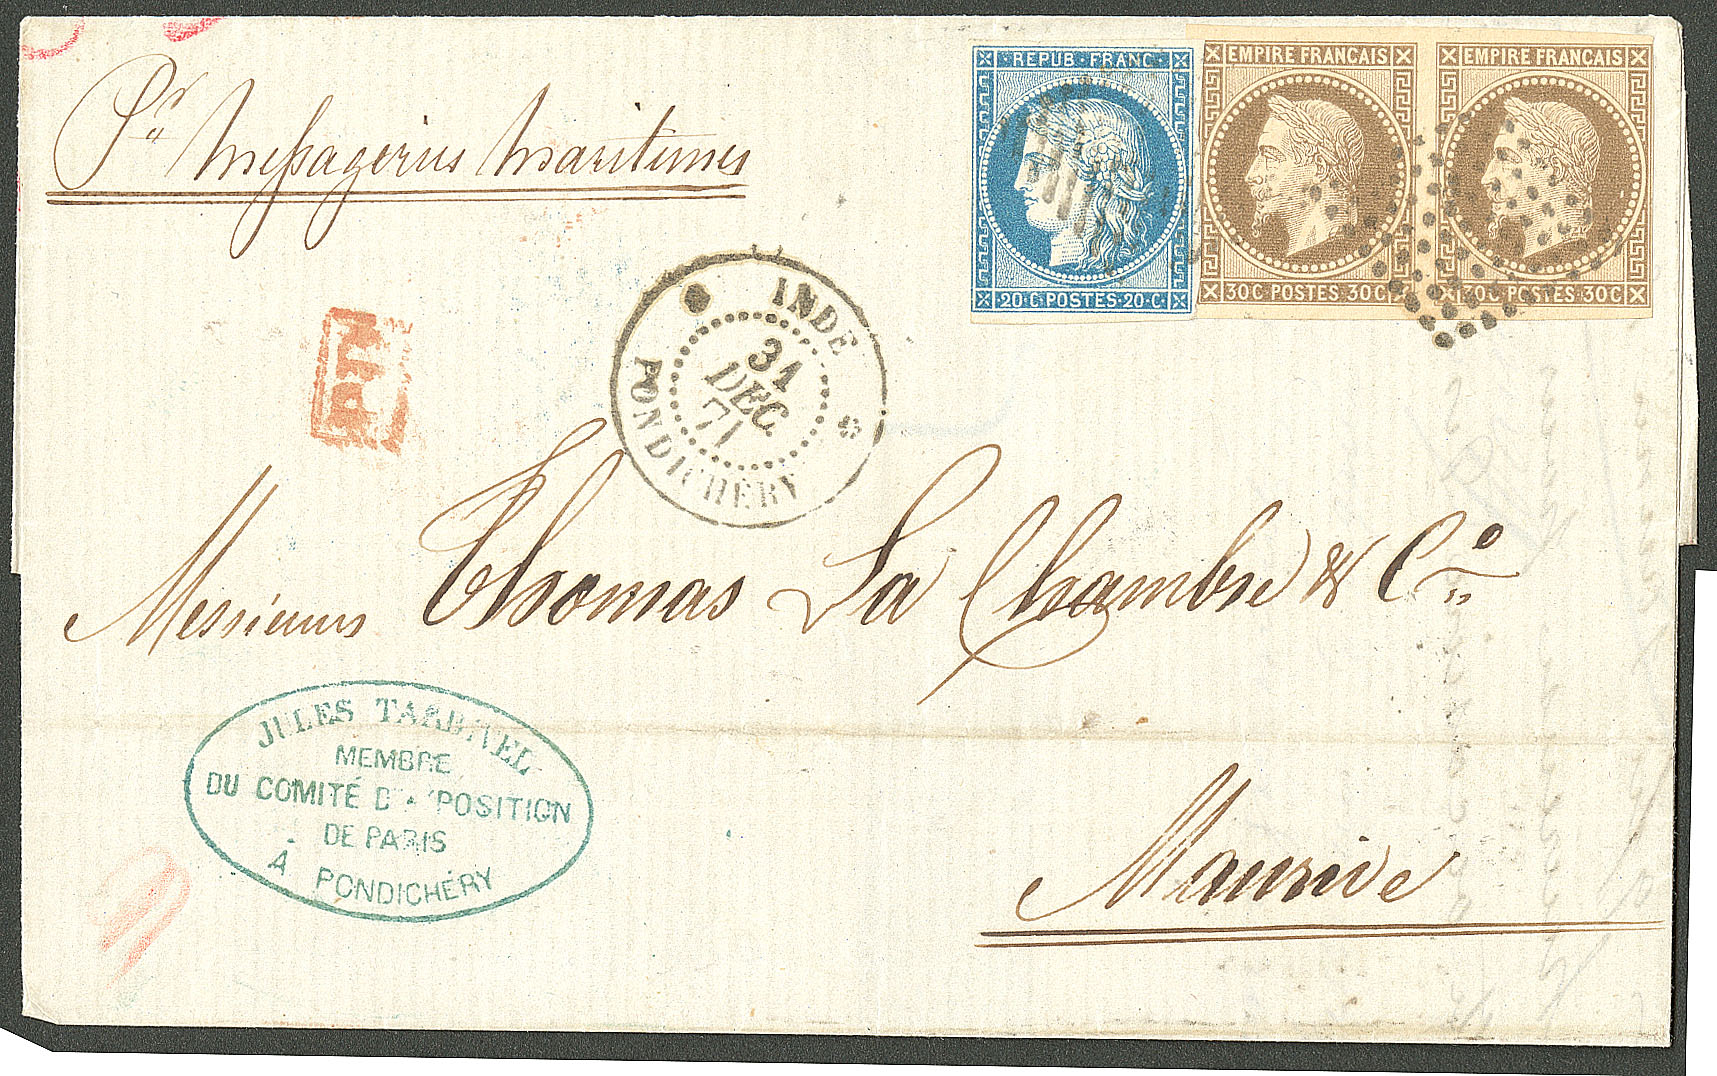 Pr Messageries Maritimes
REPUB·FRANC
20·C·POSTES·20·C·
EMPIRE FRANCAIS
30C POSTES 30C
EMPIRE FRANCAIS
30C POSTES 30C
INDE
31
DEC.
71
PONDICHÉRY
Messieurs Thomas La Chambre & Cie
Maurice
JULES
MEMBRE
DU COMITÉ D'EXPOSITION
DE PARIS
À PONDICHÉRY